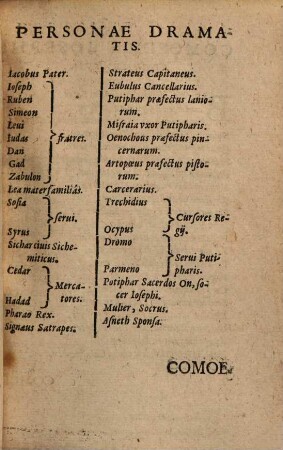 PERSONAE DRAMA-
TIS.
Iacobus Pater.
Ioseph
Ruben
Simeon
Leui
Iudas
Dan
Gad
Zabulon
fratres.
Lea mater familiâs.
Sosia
Syrus
serui.
Sichar ciuis Siche-
miticus.
Cedar
Hadad
Merca-
tores.
Pharao Rex.
Signæus Satrapes.
Strateus Capitaneus.
Eubulus Cancellarius.
Putiphar præfectus lanio-
rum.
Misraia vxor Putipharis.
Oenochous præfectus pin-
cernarum.
Artopœus præfectus pisto-
rum.
Carcerarius.
Trechidius
Ocypus
Cursores Re-
gij.
Dromo
Parmeno
Serui Puti-
pharis.
Potiphar Sacerdos On, so-
cer Iosephi.
Mulier, Socrus.
Asneth Sponsa.
COMOE-